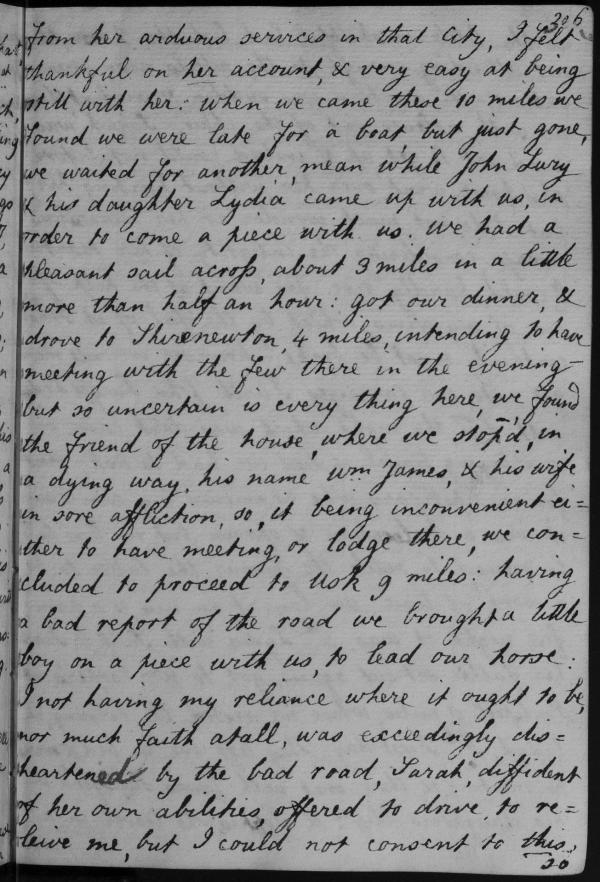 306
from her arduous services in that City, I felt
thankful on her account, & very easy at being
still with her: when we came these 10 miles we
found we were late for a boat, but just gone,
we waited for another, mean while John Lury
& his daughter Lydia came up with us, in
order to come a piece with us. we had a
pleasant sail across, about 3 miles in a little
more than half an hour: got our dinner, &
drove to Shirenewton, 4 miles, intending to have
meeting with the few there in the evening –
but so uncertain is every thing here, we found
the friend of the house, where we stop'd, in
a dying way, his name Wm James, & his wife
in sore affliction, so, it being inconvenient ei=
ther to have meeting, or lodge there, we con=
cluded to proceed to Usk 9 miles: having
a bad report of the road we brought a little
boy on a piece with us, to lead our horse:
I not having my reliance where it ought to be,
nor much faith atall, was exceedingly dis=
heartened by the bad road, Sarah, diffident
of her own abilities, offered to drive, to re=
leive me, but I could not consent to this,
20